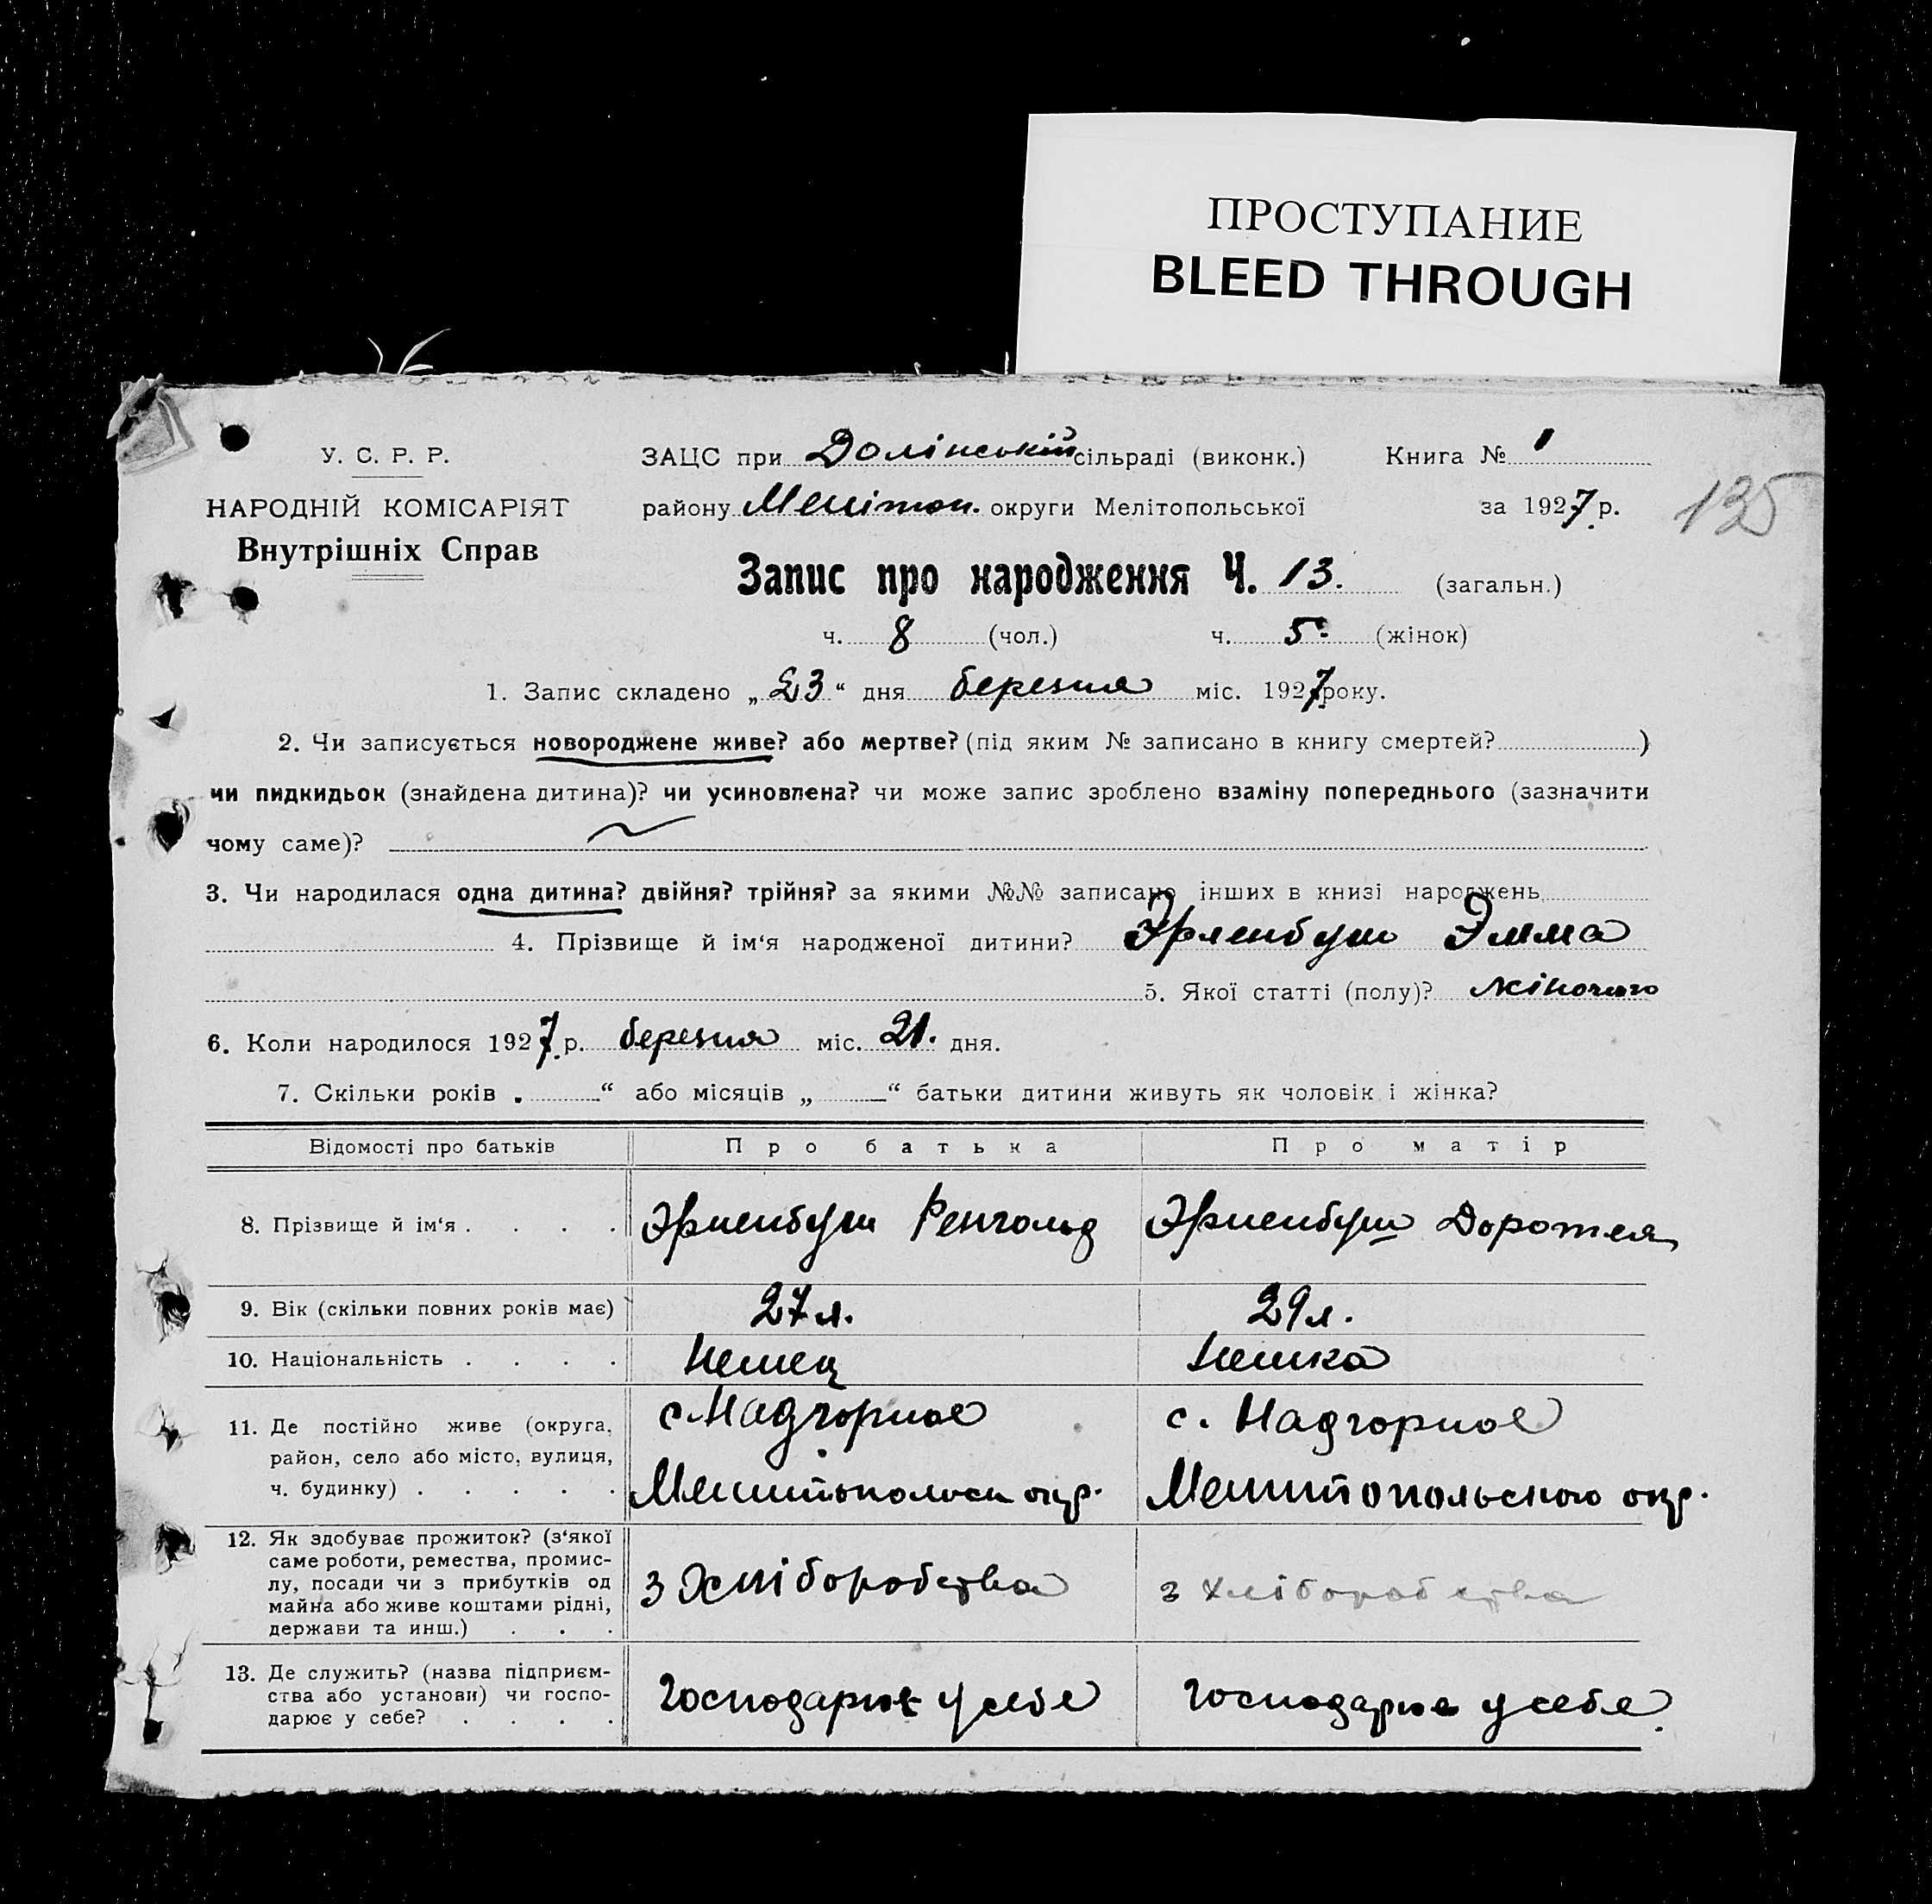 ПРОСТУПАНИЕ
BLEED THROUGH
У. С. Р. Р.
НАРОДНІЙ КОМІСАРІЯТ
Внутрішніх Справ
ЗАЦС при Долінській сільраді (виконк.) Книга № 1
району Мелітоп. округи Мелітопольської за 1927 р.
135
Запис про народження Ч. 13. (загальн.)
ч. 8 (чол.) ч. 5 (жінок)
1. Запис складено „23“ дня березня міс. 1927 року.
2. Чи записується новороджене живе? або мертве? (під яким № записано в книгу смертей? )
чи пидкидьок (знайдена дитина)? чи усиновлена? чи може запис зроблено взаміну попереднього (зазначити
чому саме)?
3. Чи народилася одна дитина? двійня? трійня? за якими №№ записано інших в книзі народжень
4. Прізвище й ім‘я народженої дитини? Эрленбуш Эмма
5. Якої статті (полу)? жіночого
6. Коли народилося 1927 р. березня міс. 21. дня.
7. Скільки років „ “ або місяців „ “ батьки дитини живуть як чоловік і жінка?
Відомості про батьків Про батька Про матір
8. Прізвище й ім‘я . . . . Эрленбуш Ренгольд Эрленбуш Доротея
9. Вік (скільки повних років має) 27 л. 29 л.
10. Національність . . . . Немец Немка
11. Де постійно живе (округа,
район, село або місто, вулиця,
ч. будинку) . . . . .
с. Надгорное
Мелитопольск окр.
с. Надгорное
Мелитопольского окр.
12. Як здобуває прожиток? (з‘якої
саме роботи, ремества, промис-
лу, посади чи з прибутків од
майна або живе коштами рідні,
держави та инш.) . . .
з Хліборобства
з хліборобства
13. Де служить? (назва підприєм-
ства або установи) чи госпо-
дарює у себе? . . . .
Господарює у себе
Господарює у себе.